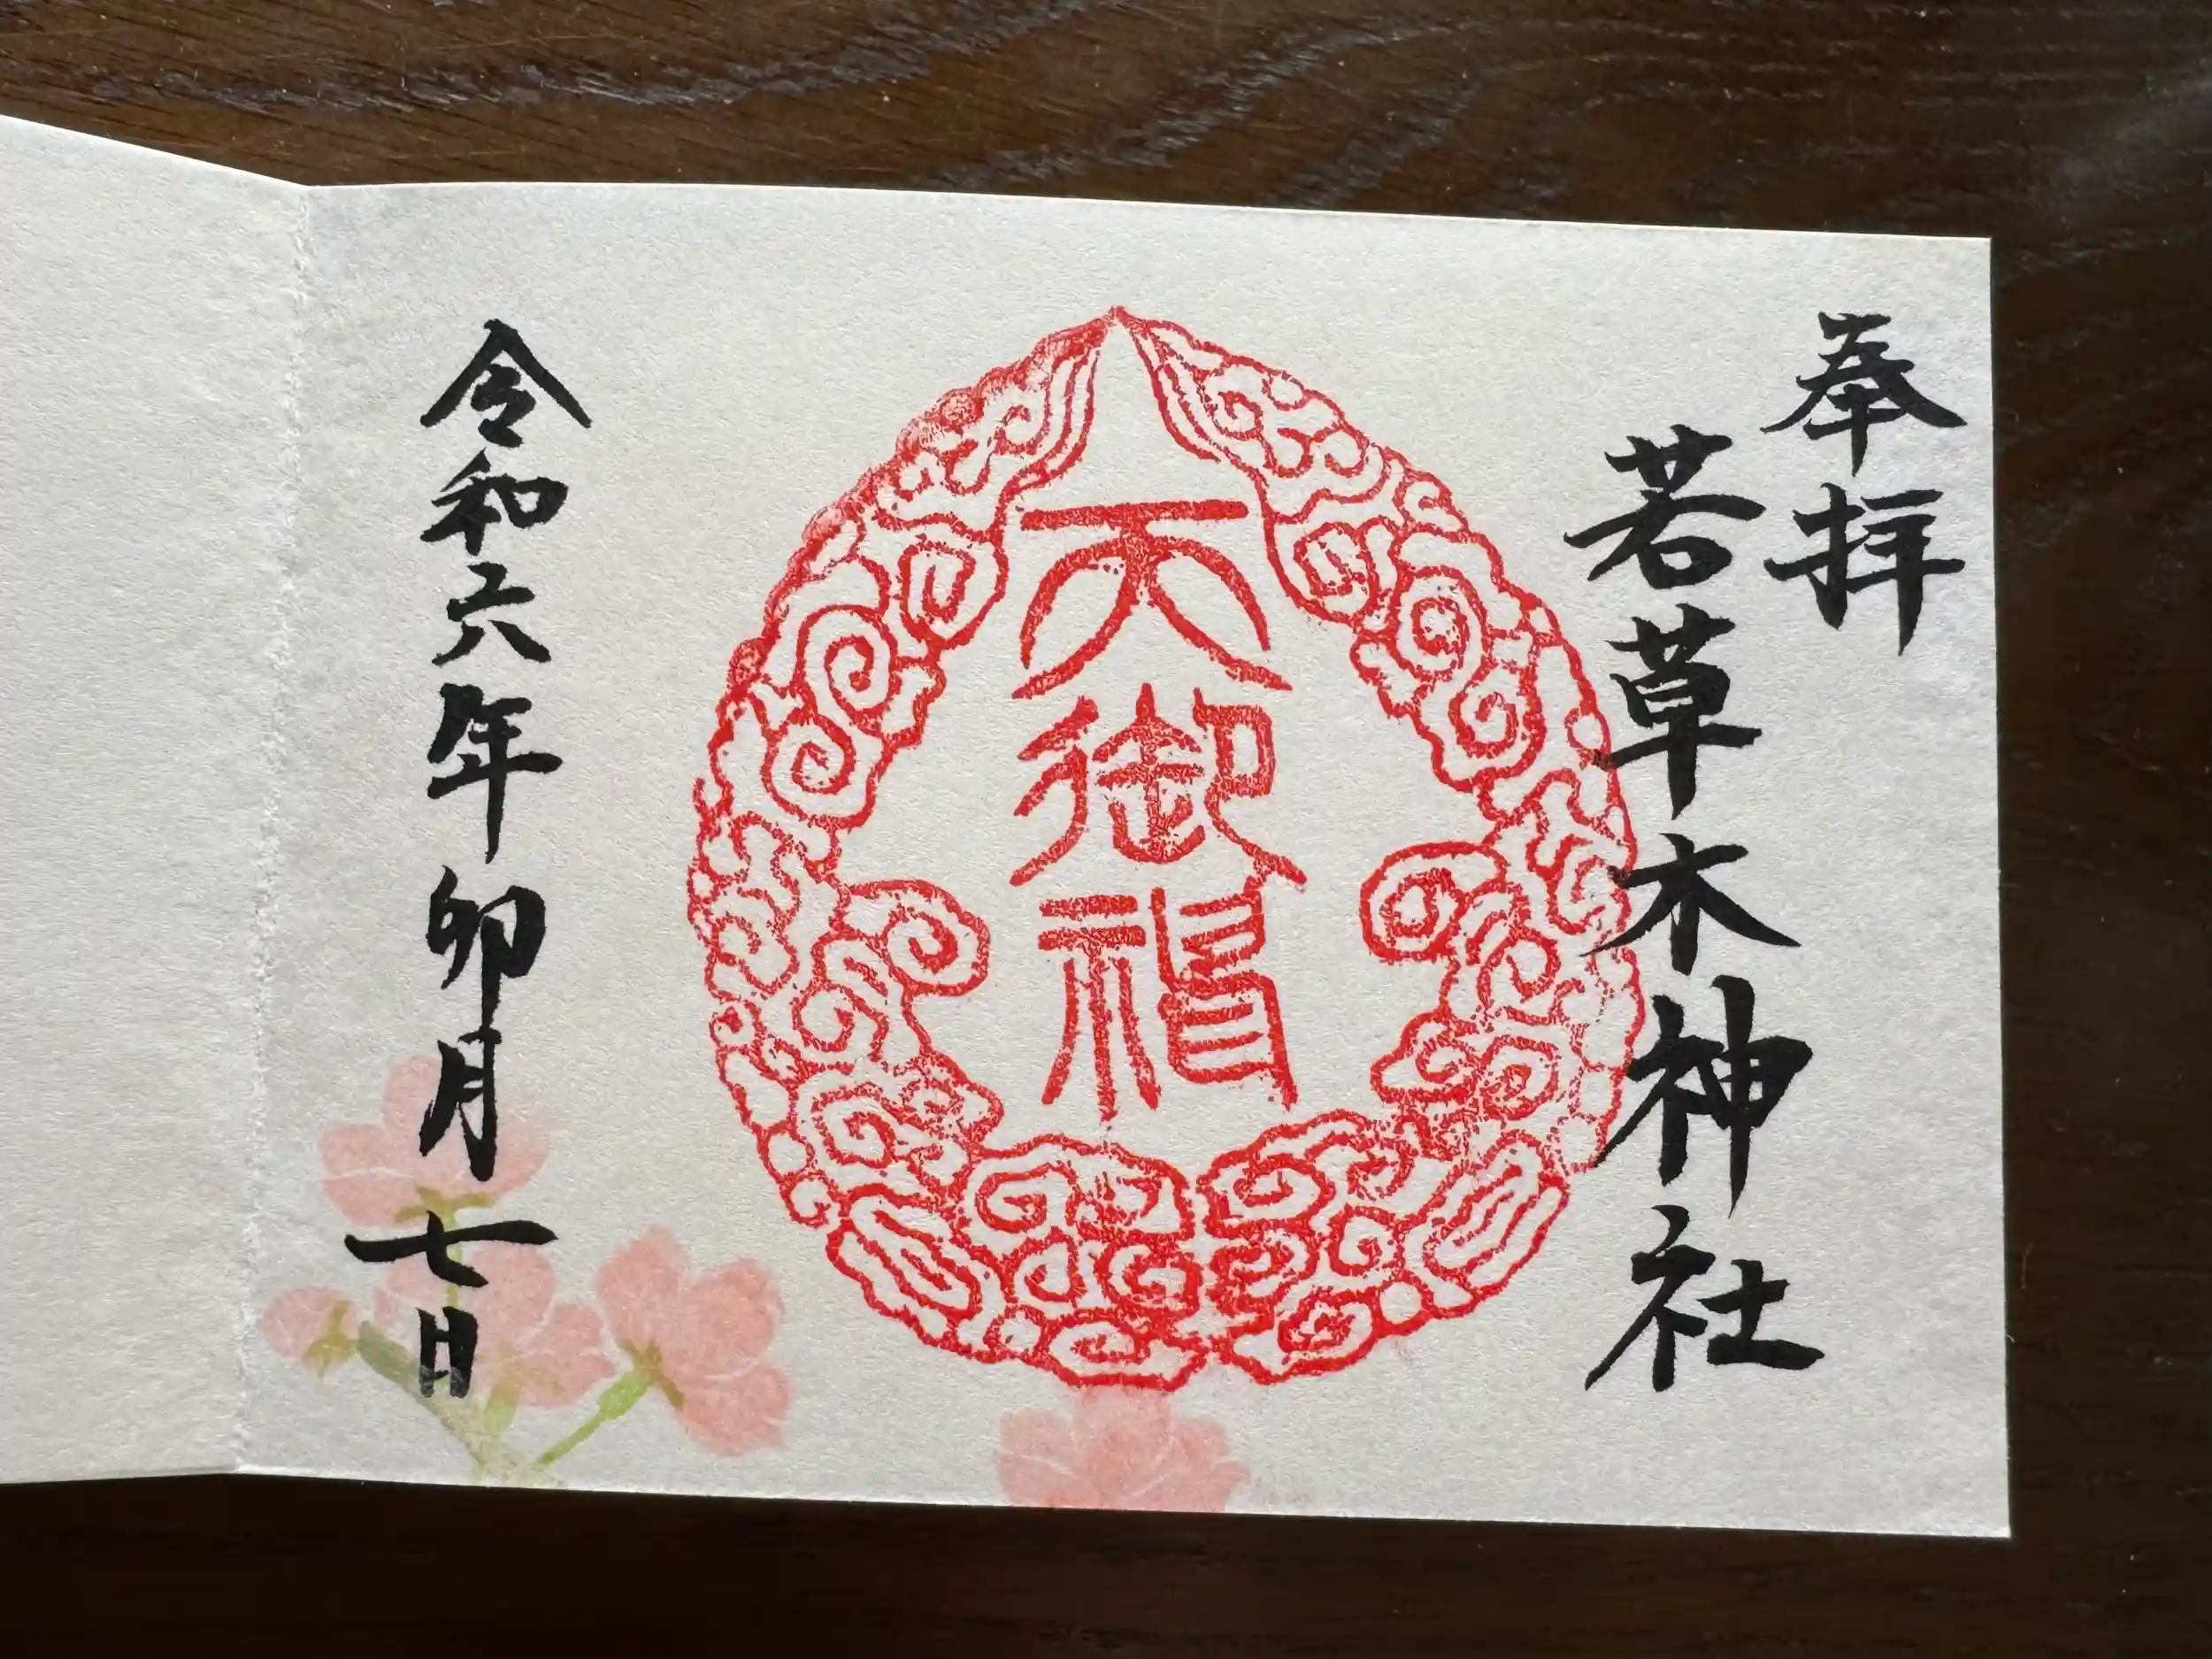 奉拝
若草木神社
天御
令和六年卯月七日